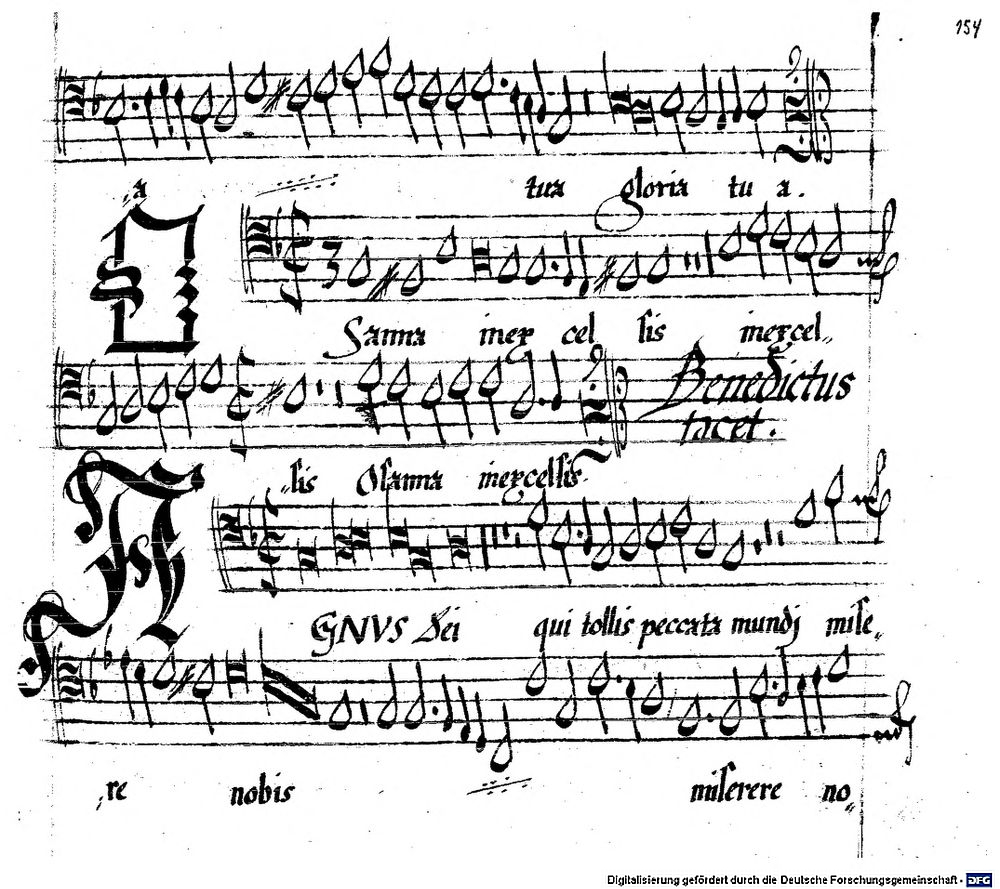 154
„a tua gloria tu a.
OSanna inex cel sis inexcel„
Benedictus
tacet.
„sis Osanna inexcelsis
AGNVS Dei qui tollis peccata mundj mise„
„re nobis miserere no„
Digitalisierung gefördert durch die Deutsche Forschungsgemeinschaft - DFG